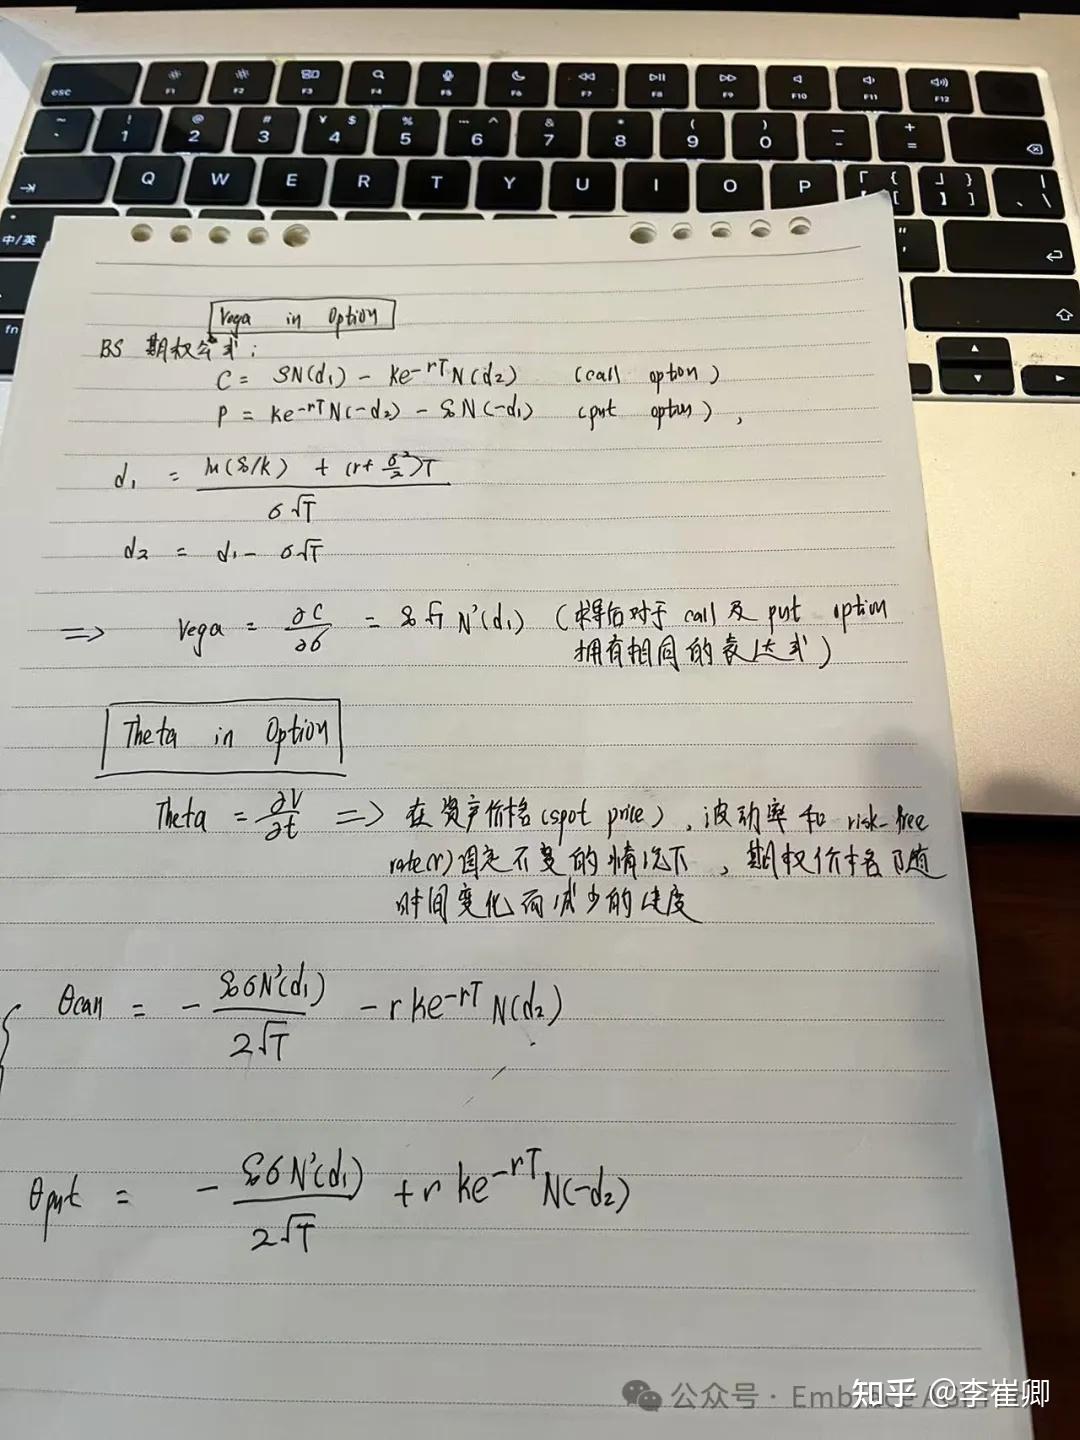 esc F1 F2 F3 F4 F5 F6 F7 F8 F9 F10 F11 F12
~ ` ! 1 @ 2 # 3 ¥ $ 4 % 5 … ^ 6 & 7 * 8 ( 9 ) 0 — - + =
Q W E R T Y U I O P 「 { 【 [ 」 } 】 ] | 、 \
中/英
fn
Vega in Option
BS 期权公式:
C = SN(d₁) - ke^-rT N(d₂) (call option)
P = ke^-rT N(-d₂) - S₀N(-d₁) (put option),
d₁ = ln(S₀/k) + (r+σ²/2)T / σ√T
d₂ = d₁ - σ√T
=> Vega = ∂C/∂σ = S₀√T N'(d₁) (求导后对于 call 及 put option
拥有相同的表达式)
Theta in Option
Theta = ∂V/∂t => 在资产价格(spot price),波动率和 risk-free
rate(r)固定不变的情况下,期权价格随
时间变化而减少的速度
θcall = - S₀σN'(d₁) / 2√T - rke^-rT N(d₂)
θput = - S₀σN'(d₁) / 2√T + rke^-rT N(-d₂)
公众号 · Emb
知乎 @李崔卿